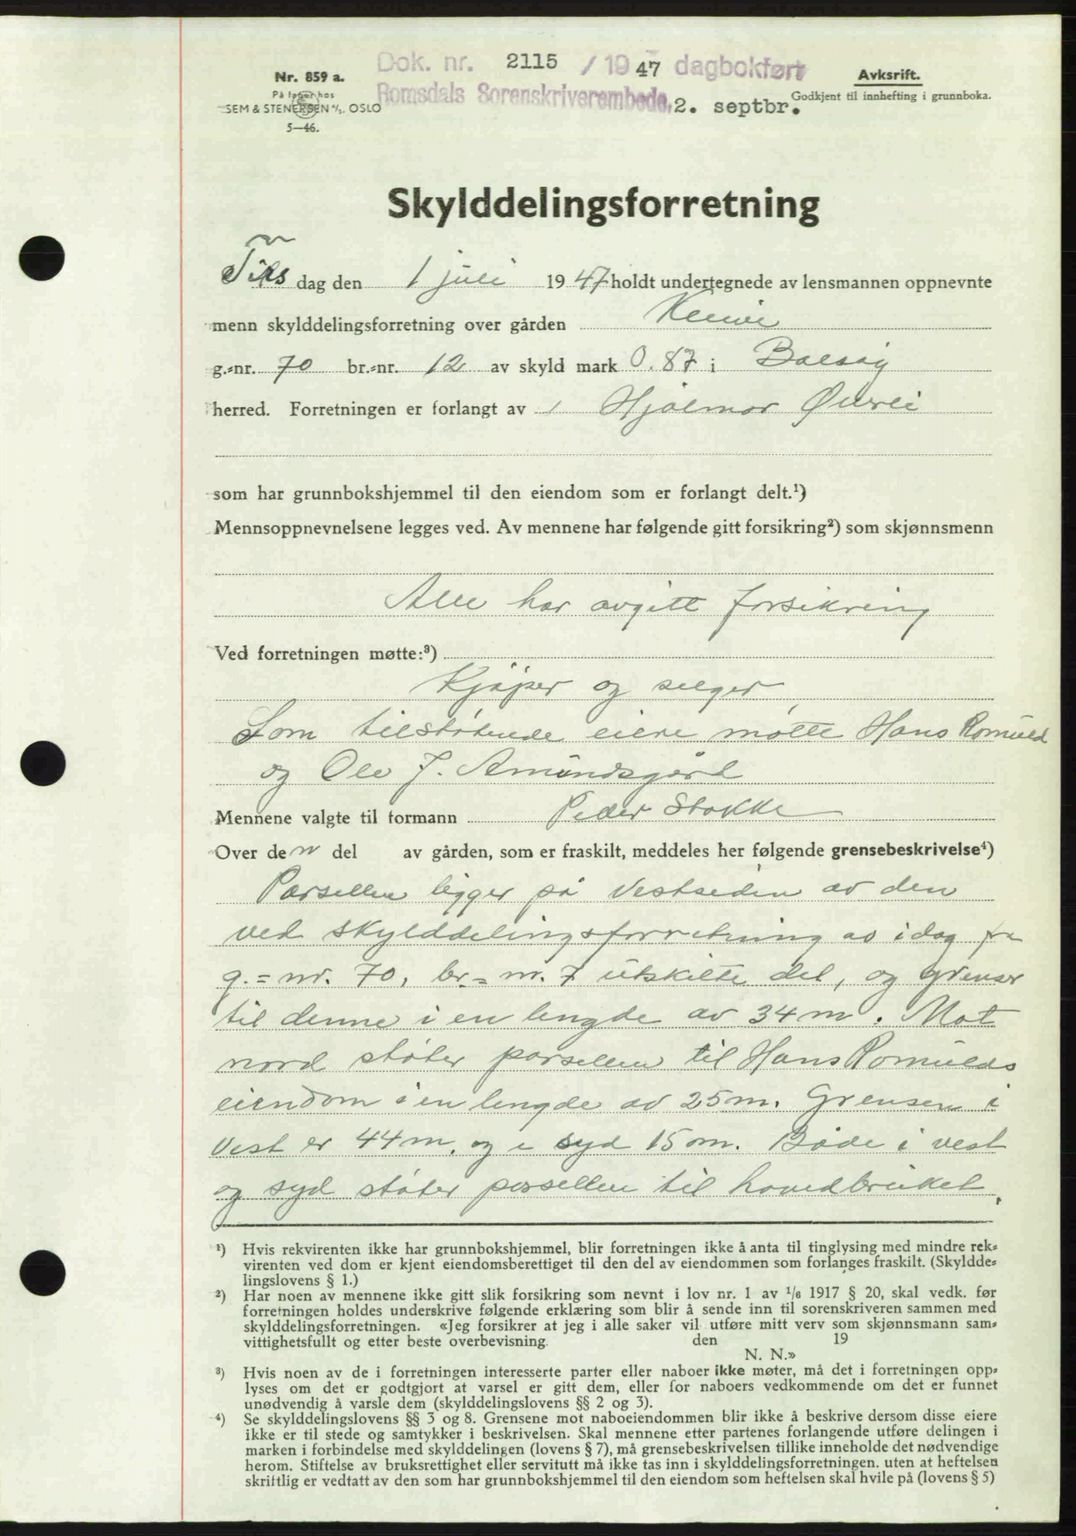 Dok. nr. 2115 / 1947 dagbokført
Romsdals Sorenskriverembede, 2. septbr.
Nr. 859 a.
På lager hos
SEM & STENERSEN A/S. OSLO
5—46.
Avkskrift.
Godkjent til innhefting i grunnboka.
Skylddelingsforretning
Tirsdag den 1 juli 1947 holdt undertegnede av lensmannen oppnevnte
menn skylddelingsforretning over gården
g.-nr. 70 br.-nr. 12 av skyld mark 0.87 i Bolsøy
herred. Forretningen er forlangt av Hjalmar
som har grunnbokshjemmel til den eiendom som er forlangt delt.¹)
Mennsoppnevnelsene legges ved. Av mennene har følgende gitt forsikring²) som skjønnsmenn
Alle har avgitt forsikring
Ved forretningen møtte:³)
Kjøper og selger
Som tilstøtende eiere møtte Hans Romuld
og Ole J. Amundsgård
Mennene valgte til formann Peder Stokke
Over den del av gården, som er fraskilt, meddeles her følgende grensebeskrivelse⁴)
Parsellen ligger på Vestsiden av den
ved skylddelingsforretning av idag fra
g.=nr. 70, br.=nr. 7 utskilte del, og grenser
til denne i en lengde av 34 m. Mot
nord støter parsellen til Hans Romulds
eiendom i en lengde av 25 m. Grensen i
Vest er 44 m. og i syd 15 m. Både i vest
og syd støter parsellen til hovedbruket.
¹) Hvis rekvirenten ikke har grunnbokshjemmel, blir forretningen ikke å anta til tinglysing med mindre rek-
virenten ved dom er kjent eiendomsberettiget til den del av eiendommen som forlanges fraskilt. (Skyldde-
lingslovens § 1.)
²) Har noen av mennene ikke gitt slik forsikring som nevnt i lov nr. 1 av 1/6 1917 § 20, skal vedk. før
forretningen holdes underskrive følgende erklæring som blir å sende inn til sorenskriveren sammen med
skylddelingsforretningen. «Jeg forsikrer at jeg i alle saker vil utføre mitt verv som skjønnsmann sam-
vittighetsfullt og etter beste overbevisning. den 19
N. N.»
³) Hvis noen av de i forretningen interesserte parter eller naboer ikke møter, må det i forretningen opp-
lyses om det er godtgjort at varsel er gitt dem, eller for naboers vedkommende om det er funnet
unødvendig å varsle dem (skylddelingslovens §§ 2 og 3).
⁴) Se skylddelingslovens §§ 3 og 8. Grensene mot naboeiendommen blir ikke å beskrive dersom disse eiere
ikke er til stede og samtykker i beskrivelsen. Skal mennene etter partenes forlangende utføre delingen i
marken i forbindelse med skylddelingen (lovens § 7), må grensebeskrivelsen tillike inneholde det nødvendige
herom. Stiftelse av bruksrettighet eller servitutt må ikke tas inn i skylddelingsforretningen. uten at heftelsen
skriftlig er vedtatt av den som har grunnbokshjemmel til den eiendom som heftelsen skal hvile på (lovens § 5)